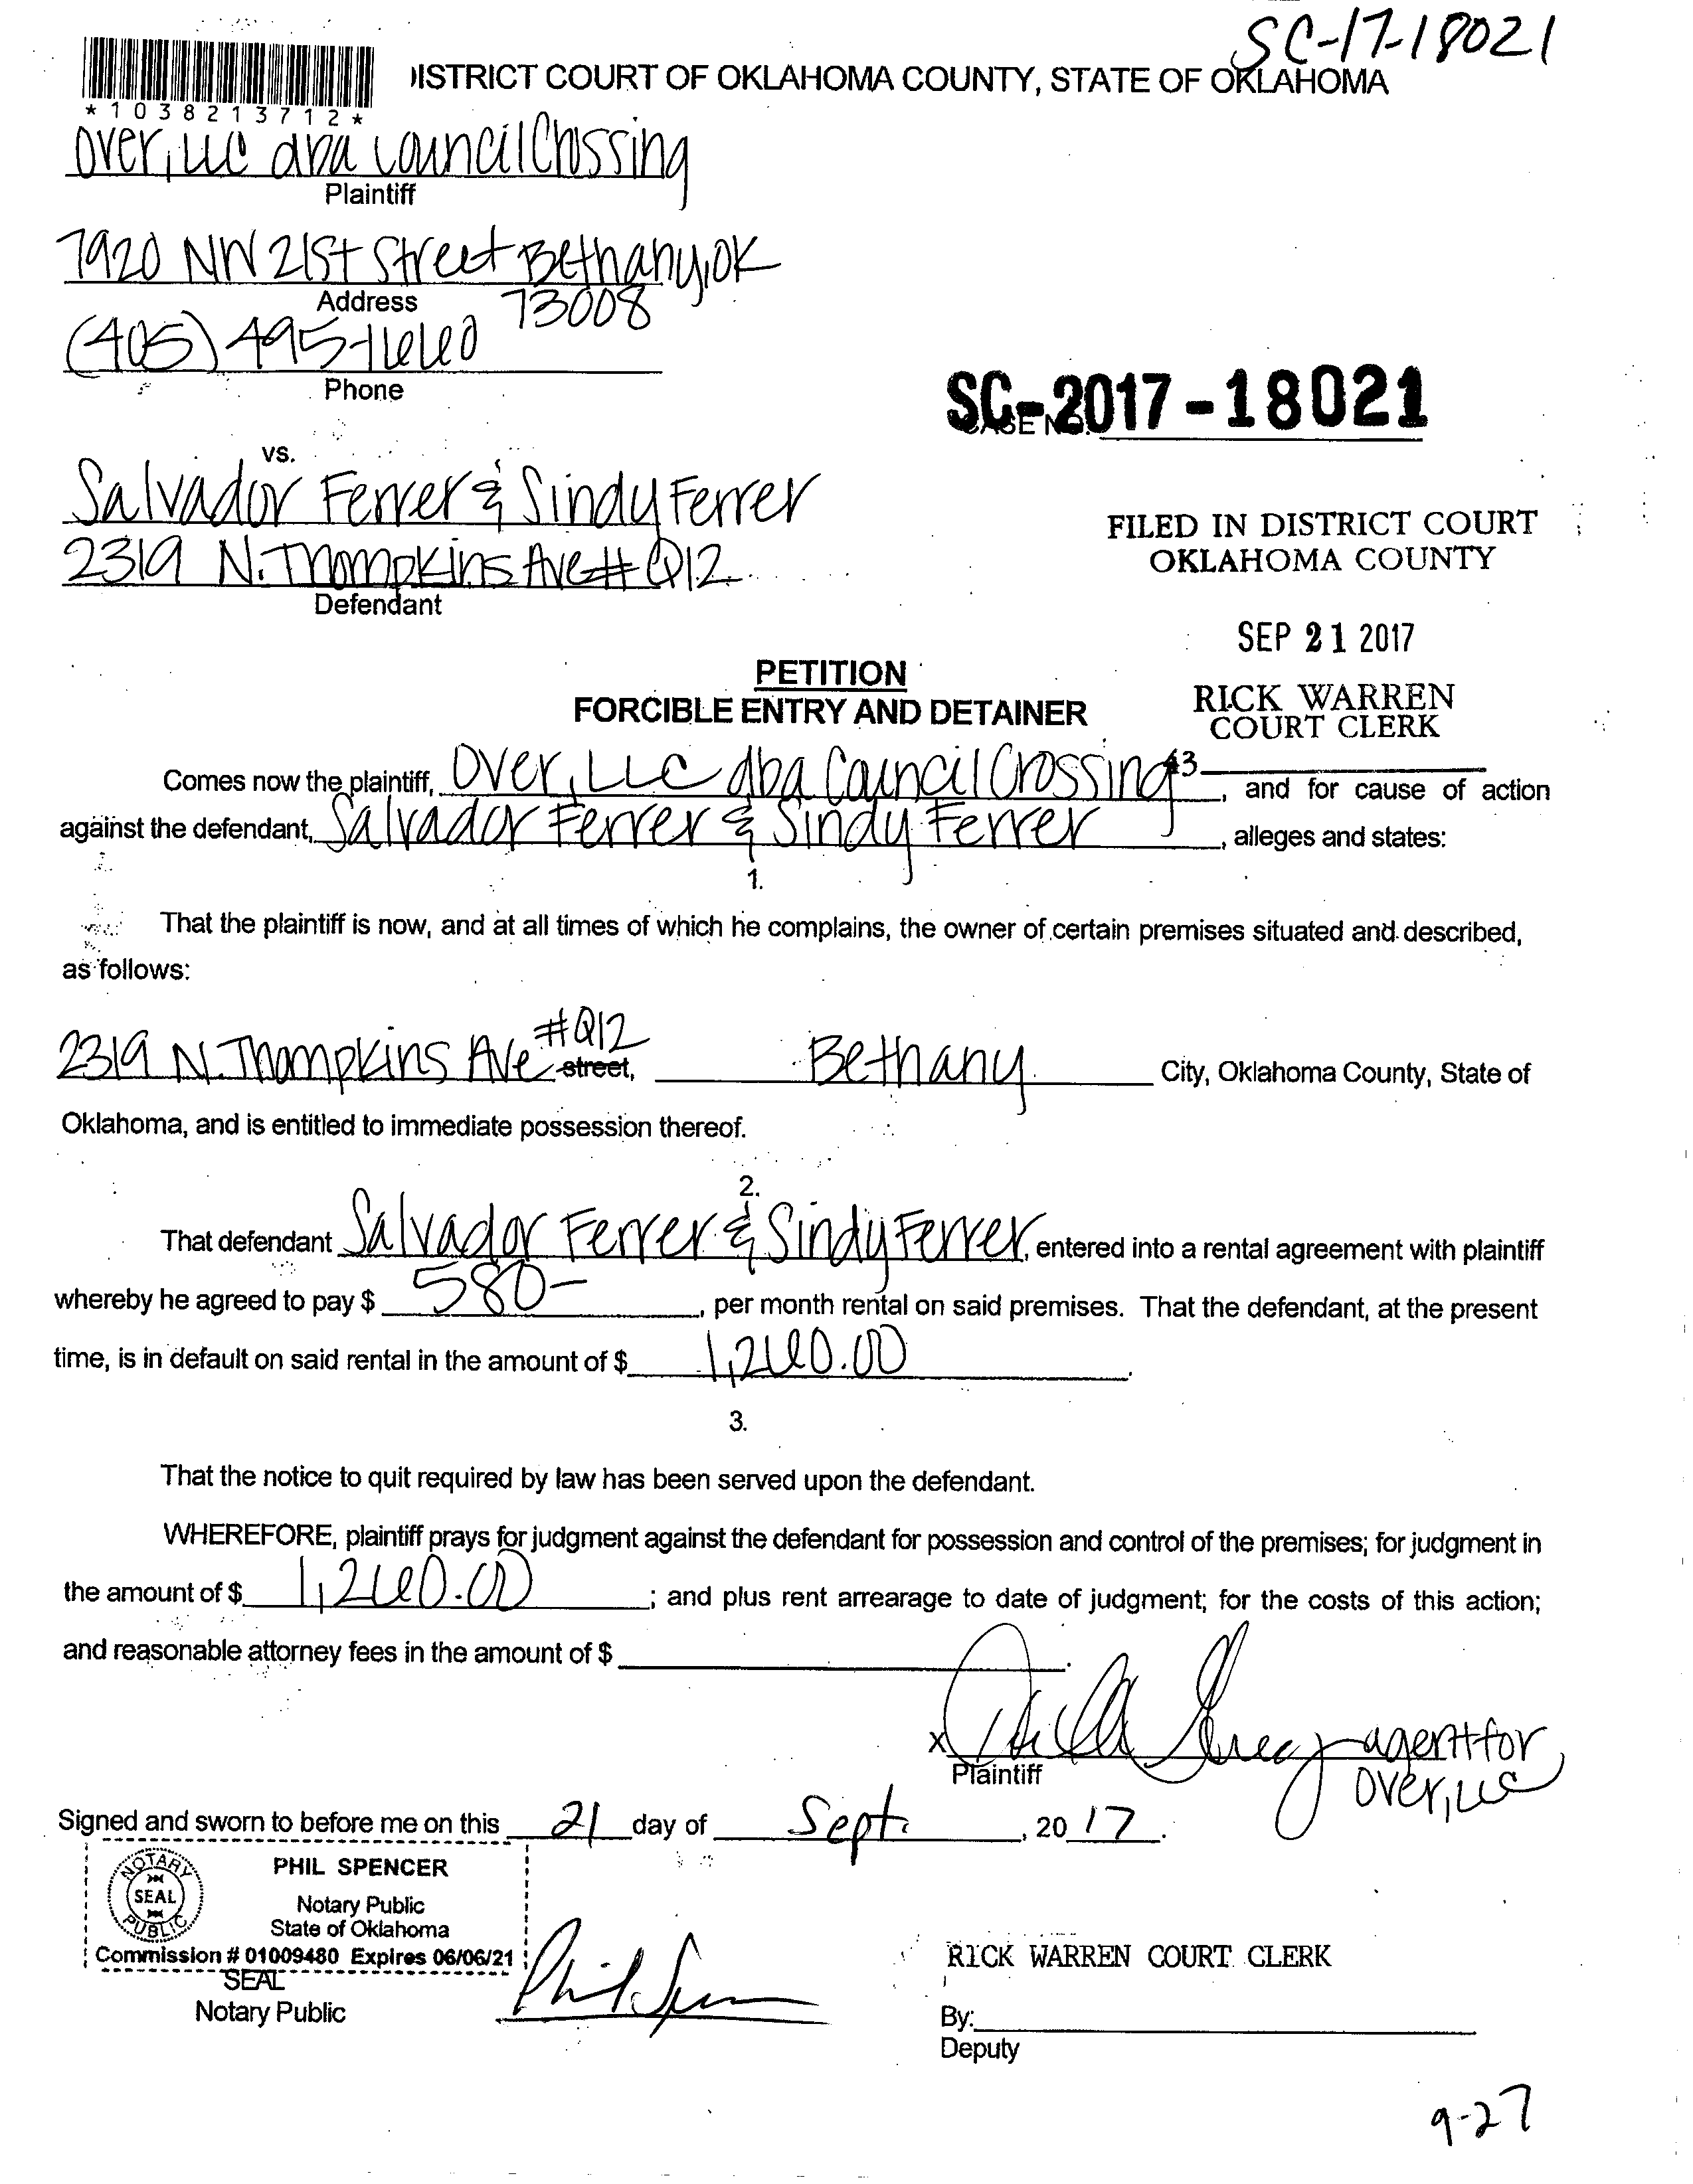 SC-17-18021
*1038213712*
ISTRICT COURT OF OKLAHOMA COUNTY, STATE OF OKLAHOMA
Over, LLC dba Council Crossing
Plaintiff
7920 NW 21st Street Bethany, OK
Address
73008
(405) 495-1660
Phone
SC-2017-18021
CASE NO.
vs.
Salvador Ferrer & Sindy Ferrer
2319 N. Thompkins Ave # Q12
Defendant
FILED IN DISTRICT COURT
OKLAHOMA COUNTY
SEP 21 2017
RICK WARREN
COURT CLERK
43
PETITION
FORCIBLE ENTRY AND DETAINER
Comes now the plaintiff, Over, LLC dba Council Crossing, and for cause of action
against the defendant, Salvador Ferrer & Sindy Ferrer, alleges and states:
1.
That the plaintiff is now, and at all times of which he complains, the owner of certain premises situated and described,
as follows:
2319 N. Thompkins Ave #Q12 street, Bethany City, Oklahoma County, State of
Oklahoma, and is entitled to immediate possession thereof.
2.
That defendant Salvador Ferrer & Sindy Ferrer, entered into a rental agreement with plaintiff
whereby he agreed to pay $ 580-, per month rental on said premises. That the defendant, at the present
time, is in default on said rental in the amount of $ 1,260.00.
3.
That the notice to quit required by law has been served upon the defendant.
WHEREFORE, plaintiff prays for judgment against the defendant for possession and control of the premises; for judgment in
the amount of $ 1,260.00; and plus rent arrearage to date of judgment; for the costs of this action;
and reasonable attorney fees in the amount of $ .
X agent for
Plaintiff
Over, LLC
Signed and sworn to before me on this 21 day of Sept., 20 17.
NOTARY PUBLIC SEAL
PHIL SPENCER
Notary Public
State of Oklahoma
Commission # 01009480 Expires 06/06/21
SEAL
Notary Public
Phil Spencer
RICK WARREN COURT CLERK
By:
Deputy
9-27